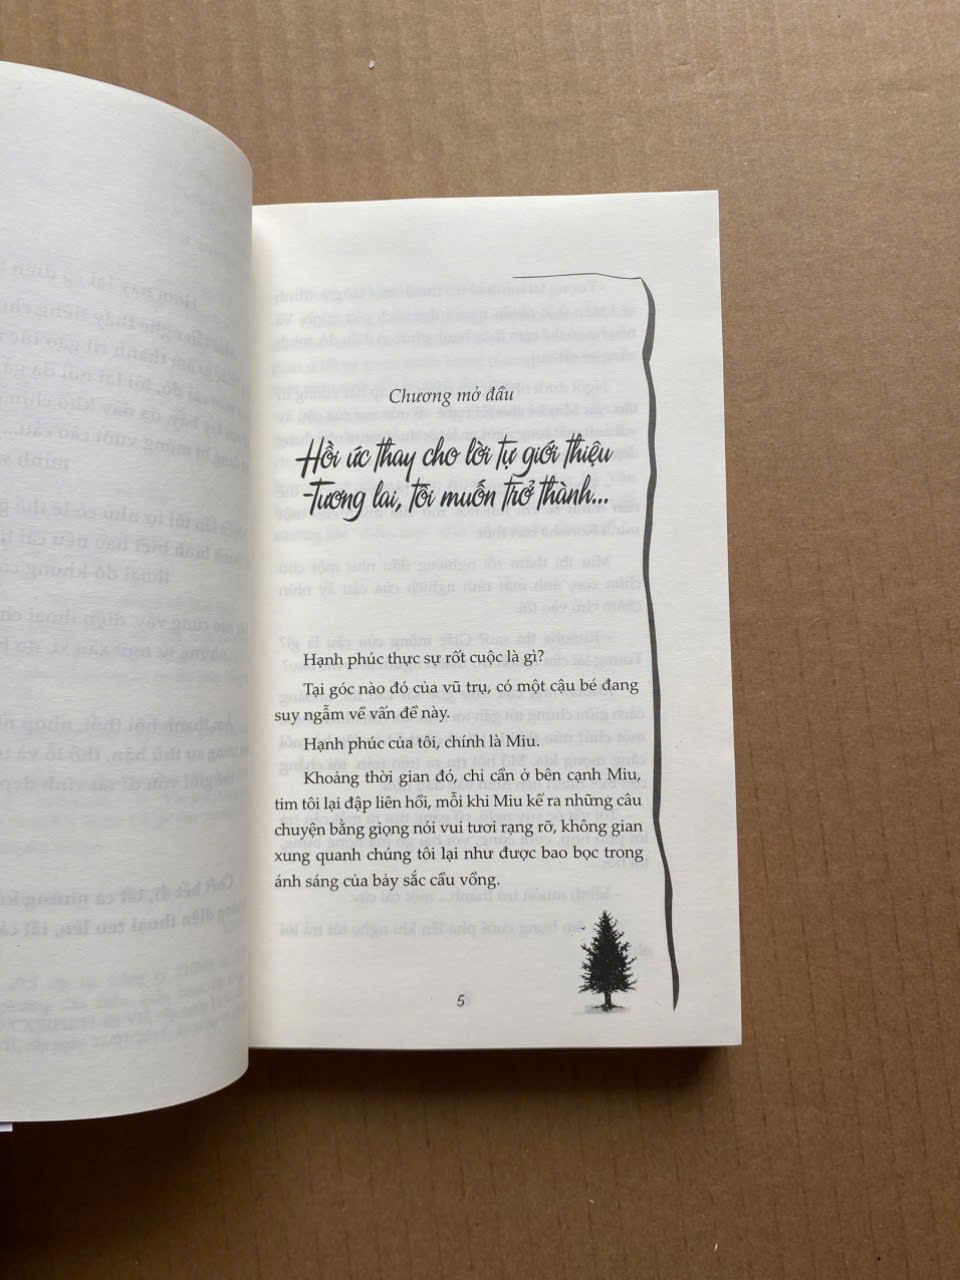 Chương mở đầu
Hồi ức thay cho lời tự giới thiệu
-Tương lai, tôi muốn trở thành...
Hạnh phúc thực sự rốt cuộc là gì?
Tại góc nào đó của vũ trụ, có một cậu bé đang
suy ngẫm về vấn đề này.
Hạnh phúc của tôi, chính là Miu.
Khoảng thời gian đó, chỉ cần ở bên cạnh Miu,
tim tôi lại đập liên hồi, mỗi khi Miu kể ra những câu
chuyện bằng giọng nói vui tươi rạng rỡ, không gian
xung quanh chúng tôi lại như được bao bọc trong
ánh sáng của bảy sắc cầu vồng.
5